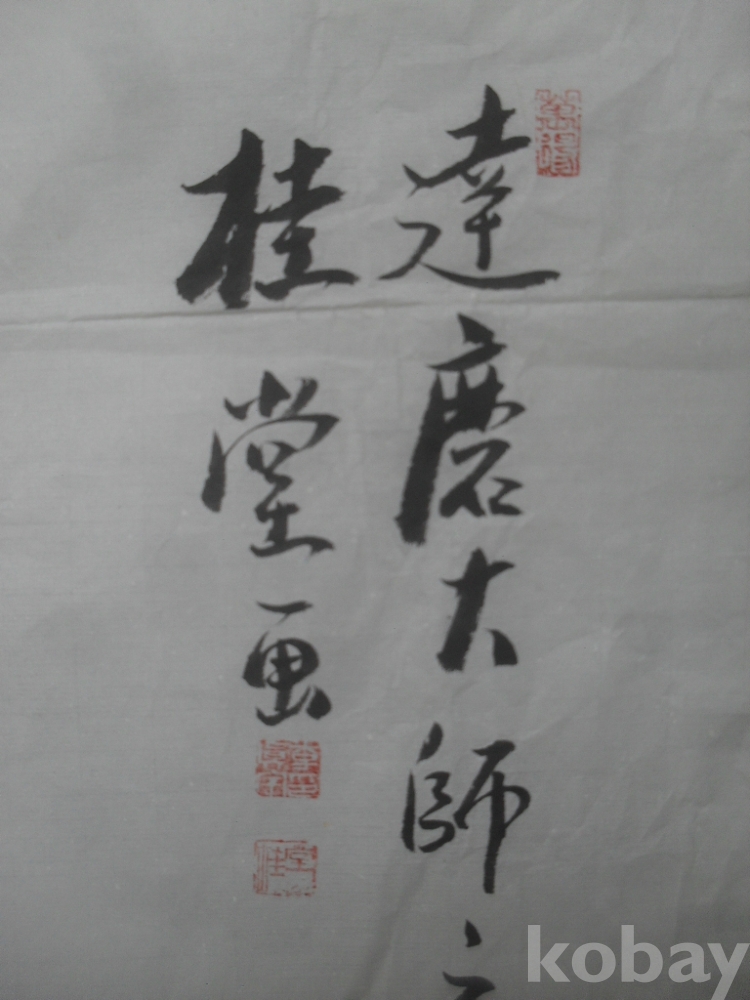 達磨大師之
桂堂画
kobay